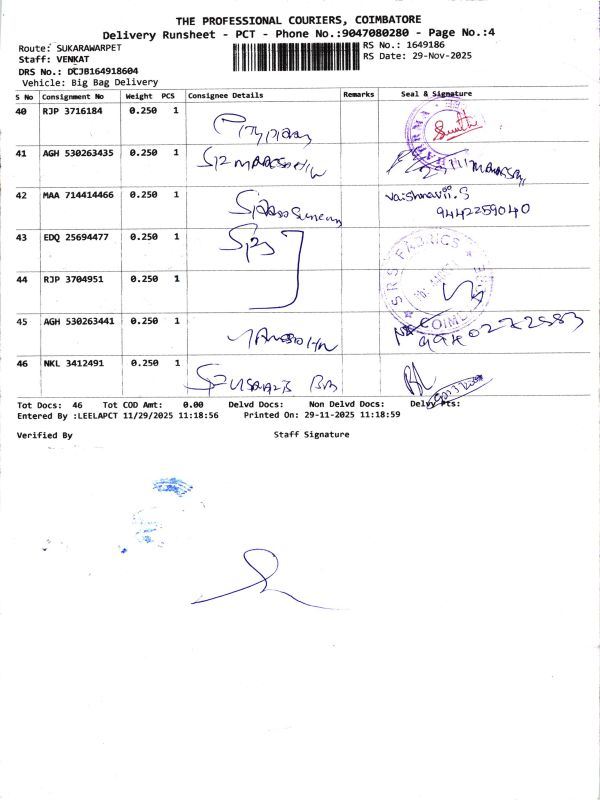 THE PROFESSIONAL COURIERS, COIMBATORE
Delivery Runsheet - PCT - Phone No.:9047080280 - Page No.:4
Route: SUKARAWARPET
Staff: VENKAT
DRS No.: DCJB164918604
Vehicle: Big Bag Delivery
RS No.: 1649186
RS Date: 29-Nov-2025
S No Consignment No Weight PCS Consignee Details Remarks Seal & Signature
40 RJP 3716184 0.250 1
41 AGH 530263435 0.250 1
42 MAA 714414466 0.250 1 Vaishnavii.S
9442259040
43 EDQ 25694477 0.250 1
SRS FABRICS
44 RJP 3704951 0.250 1
45 AGH 530263441 0.250 1
46 NKL 3412491 0.250 1
Tot Docs: 46 Tot COD Amt: 0.00 Delvd Docs: Non Delvd Docs: Delvy Pts:
Entered By :LEELAPCT 11/29/2025 11:18:56 Printed On: 29-11-2025 11:18:59
Verified By Staff Signature